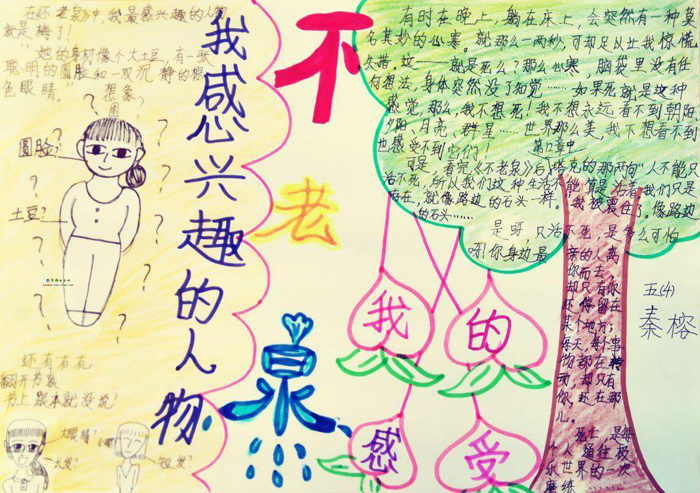 在《不老泉》中，我最感兴趣的人物
就是梅了！
"她的身材像个大土豆，有一张
聪明的圆脸和一双沉静的棕
色眼睛。"
想象
图
圆脸
土豆？
还有右右
翻开书表
书上跟本就没说！
大眼睛？
小
长发？
短发？
我感兴趣的人物
不
老
泉
有时在晚上，躺在床上，会突然有一种莫
名其妙的心寒。就那么一两秒，可却足以让我惊慌
失措，这——就是死么？那么心寒，脑袋里没有任
何想法，身体突然没了知觉……如果死就是这种
感觉，那么，我不想死！我不想永远看不到朝阳、
夕阳、月亮、群星……世界那么美，我不想看不到
也感受不到它们！
第12章中
可是，看完《不老泉》后，塔克的那两句"人不能只
活不死，所以我们这种生活不能算是活着，我们只
存在，就像路边的石头一样。"我被震住了。像路边
的石头……
是呀，只活不死，是多么可怕
呀！你身边最
亲的人离
你而去，
却只有你
还停留在
某个地方；
每天，每个事
物都在转
动，却只有
你，还在那
儿。
死亡，是每
个人通往极
乐世界的一次
磨练……
我的
感受
五(4)
秦榕